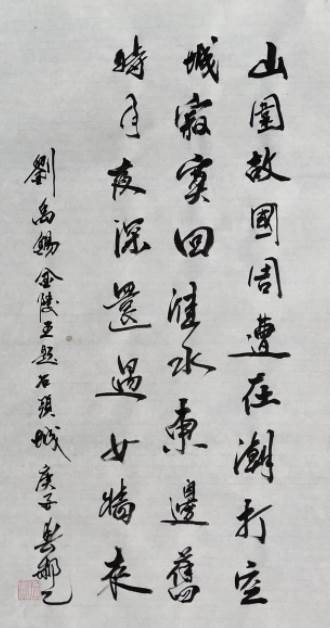 山圍故國周遭在潮打空
城寂寞回淮水東邊舊
時月夜深還過女牆來
劉禹錫金陵五題石頭城 庚子春